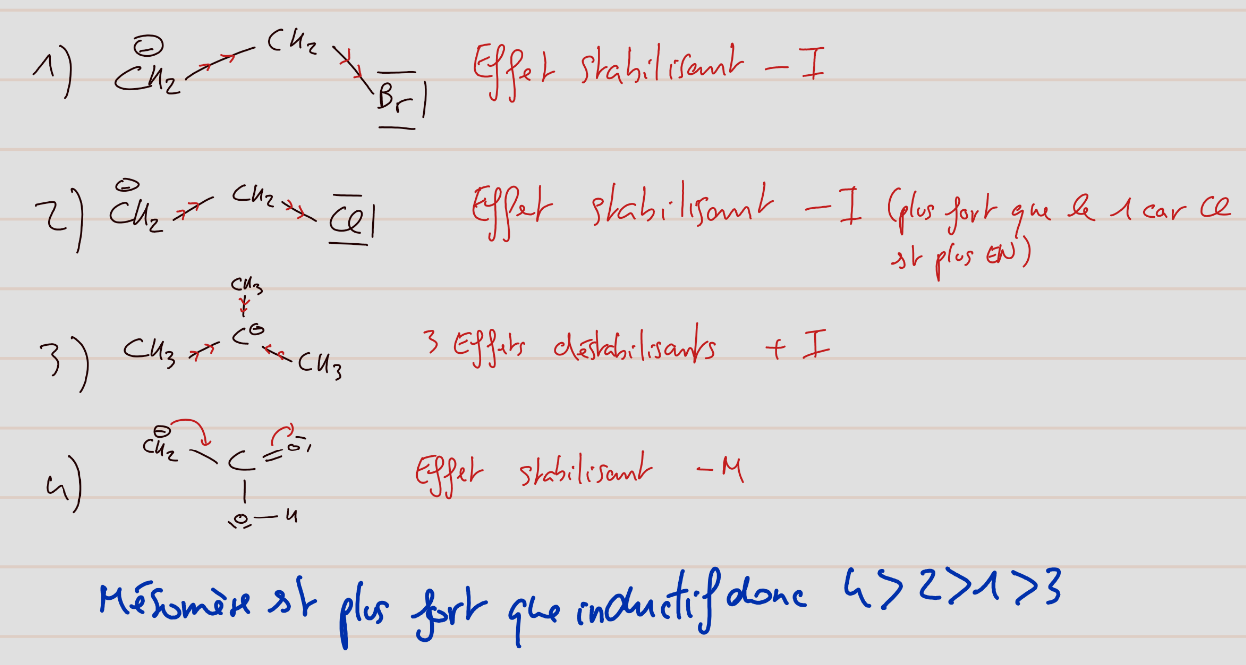 1) ⊖CH2 CH2 Br Effet stabilisant - I
2) ⊖CH2 CH2 Cl Effet stabilisant - I (plus fort que le 1 car Cl
st plus EN)
CH3
3) CH3 C⊖ CH3 3 Effets déstabilisants + I
4) ⊖CH2 C O Effet stabilisant - M
O-H
Mésomère st plus fort que inductif donc 4>2>1>3